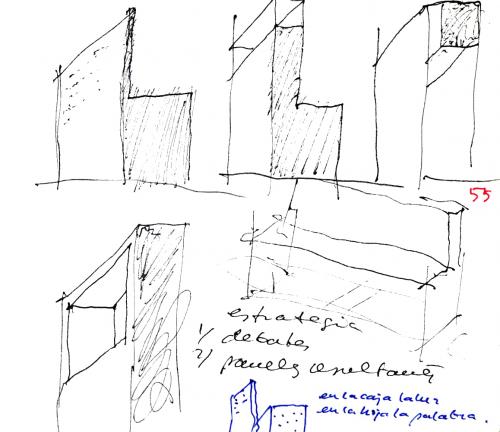 55
estrategia
1/ debates
2/ paneles resultantes
en la caja la luz
en la hoja la palabra.